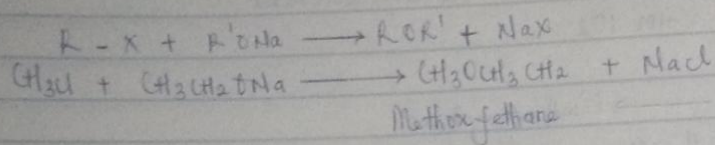 R - X + R'ONa ⟶ ROR' + NaX
CH3Cl + CH3CH2ONa ⟶ CH3OCH3CH2 + NaCl
Methoxyethane